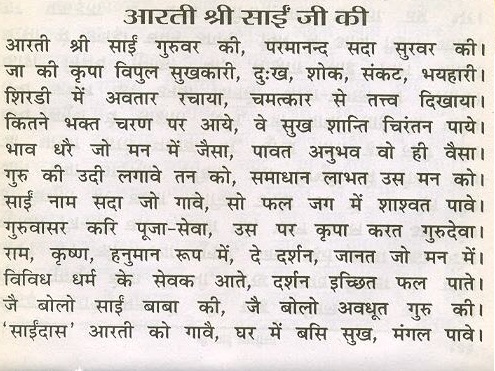 आरती श्री साईं जी की
आरती श्री साईं गुरुवर की, परमानन्द सदा सुरवर की।
जा की कृपा विपुल सुखकारी, दुःख, शोक, संकट, भयहारी।
शिरडी में अवतार रचाया, चमत्कार से तत्त्व दिखाया।
कितने भक्त चरण पर आये, वे सुख शान्ति चिरंतन पाये।
भाव धरै जो मन में जैसा, पावत अनुभव वो ही वैसा।
गुरु की उदी लगावे तन को, समाधान लाभत उस मन को।
साईं नाम सदा जो गावे, सो फल जग में शाश्वत पावे।
गुरुवासर करि पूजा-सेवा, उस पर कृपा करत गुरुदेवा।
राम, कृष्ण, हनुमान रूप में, दे दर्शन, जानत जो मन में।
विविध धर्म के सेवक आते, दर्शन इच्छित फल पाते।
जै बोलो साईं बाबा की, जै बोलो अवधूत गुरु की।
‘साईंदास’ आरती को गावै, घर में बसि सुख, मंगल पावे।